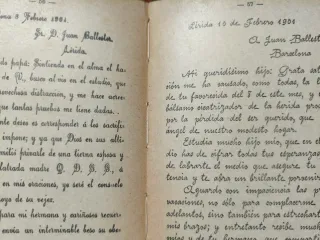 — 86 —
8 Febrero 1901.
Sr. D. Juan Ballester
Lérida.
papá: Sintiendo en el alma el ha-
de V., busco alivio en el estudio, que
distracción, y me hace acree-
tantas pruebas me tiene dadas.
deseo es corresponder á los sacrifi-
impone; y ya que Dios en sus altí-
privarle de una tierna esposa y
madre Q. D. G. G., á
en mis oraciones, ya seré el consuelo
de su vejez.
para mi hermana y cariñosos recuer-
inalterable su
— 87 —
Lérida 16 de Febrero 1901
A Juan Ballester
Barcelona
Mi queridísimo hijo: Grata sat
ción me ha causado, como todas las
de tu favorecida del 8 de este mes, y
bálsamo cicatrizador de la herida prod
por la pérdida del ser querido, que
ángel de nuestro modesto hogar.
Estudia mucho hijo mio, que en el
dio has de cifrar todas tus esperanzas
de labrarte el medio que asegure tu
tencia y te abra un brillante porvenir
Aguardo con impaciencia las pr
vacaciones, no sólo para complacerme
adelantos, sino también para estrecharte
mis brazos; y entretanto recibe much
de tu hermana que